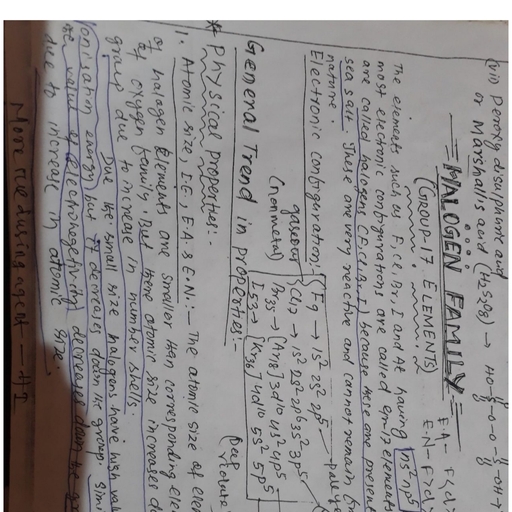 (vii) Peroxy disulphuric acid
or Marshall's acid (H2S2O8) → HO-S-O-O-S-OH →
HALOGEN FAMILY
(GROUP-17 ELEMENTS)
E.A - F<Cl>
E-N- F>Cl>
The elements such as F, Cl, Br, I and At having ns2np5
most electronic configurations are called gr-17 elements
are called halogens (F, Cl, Br, I) because these are present
sea salt. These are very reactive and cannot remain
nature.
Electronic configuration:-
gaseous
(nonmetal)
F9 → 1s2 2s2 2p5
Cl17 → 1s2 2s2 2p6 3s2 3p5
Br35 → [Ar18] 3d10 4s2 4p5
I53 → [Kr36] 4d10 5s2 5p5
Deep
violate
General Trend in properties:-
* Physical properties:-
1. Atomic size, I.E, E.A & E.N:- The atomic size of
of halogen elements are smaller than corresponding
of oxygen family. But there atomic size increases
group due to increase in number shells.
Due the small size halogens have high
ionisation energy but it decreases down the group.
value of electronegativity decreases down the
due to increase in atomic size.
More reducing agent - HI